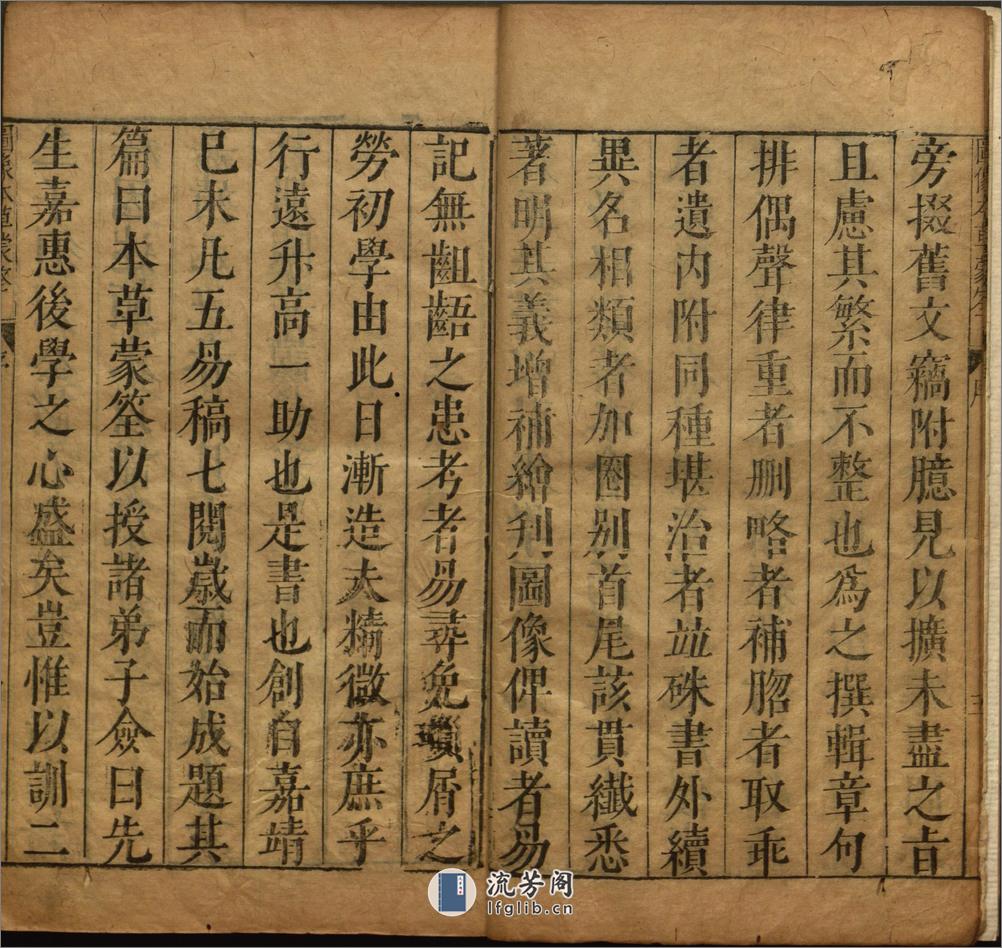 旁掇舊文竊附臆見以擴未盡之旨
且慮其繁而不整也為之撰輯章句
排偶聲律重者刪略者補脗者取乖
者遺内附同種堪治者並硃書外續
異名相類者加圈别首尾該貫纖悉
著明其義增補繪刋圖像俾讀者易
記無齟齬之患考者易尋免瑣屑之
勞初學由此日漸造太精微亦庶乎
行遠升高一助也是書也創自嘉靖
巳未凡五易稿七閲歲而始成題其
篇曰本草蒙筌以授諸弟子僉曰先
生嘉惠後學之心盛矣豈惟以訓二
流芳阁
lfglib.cn